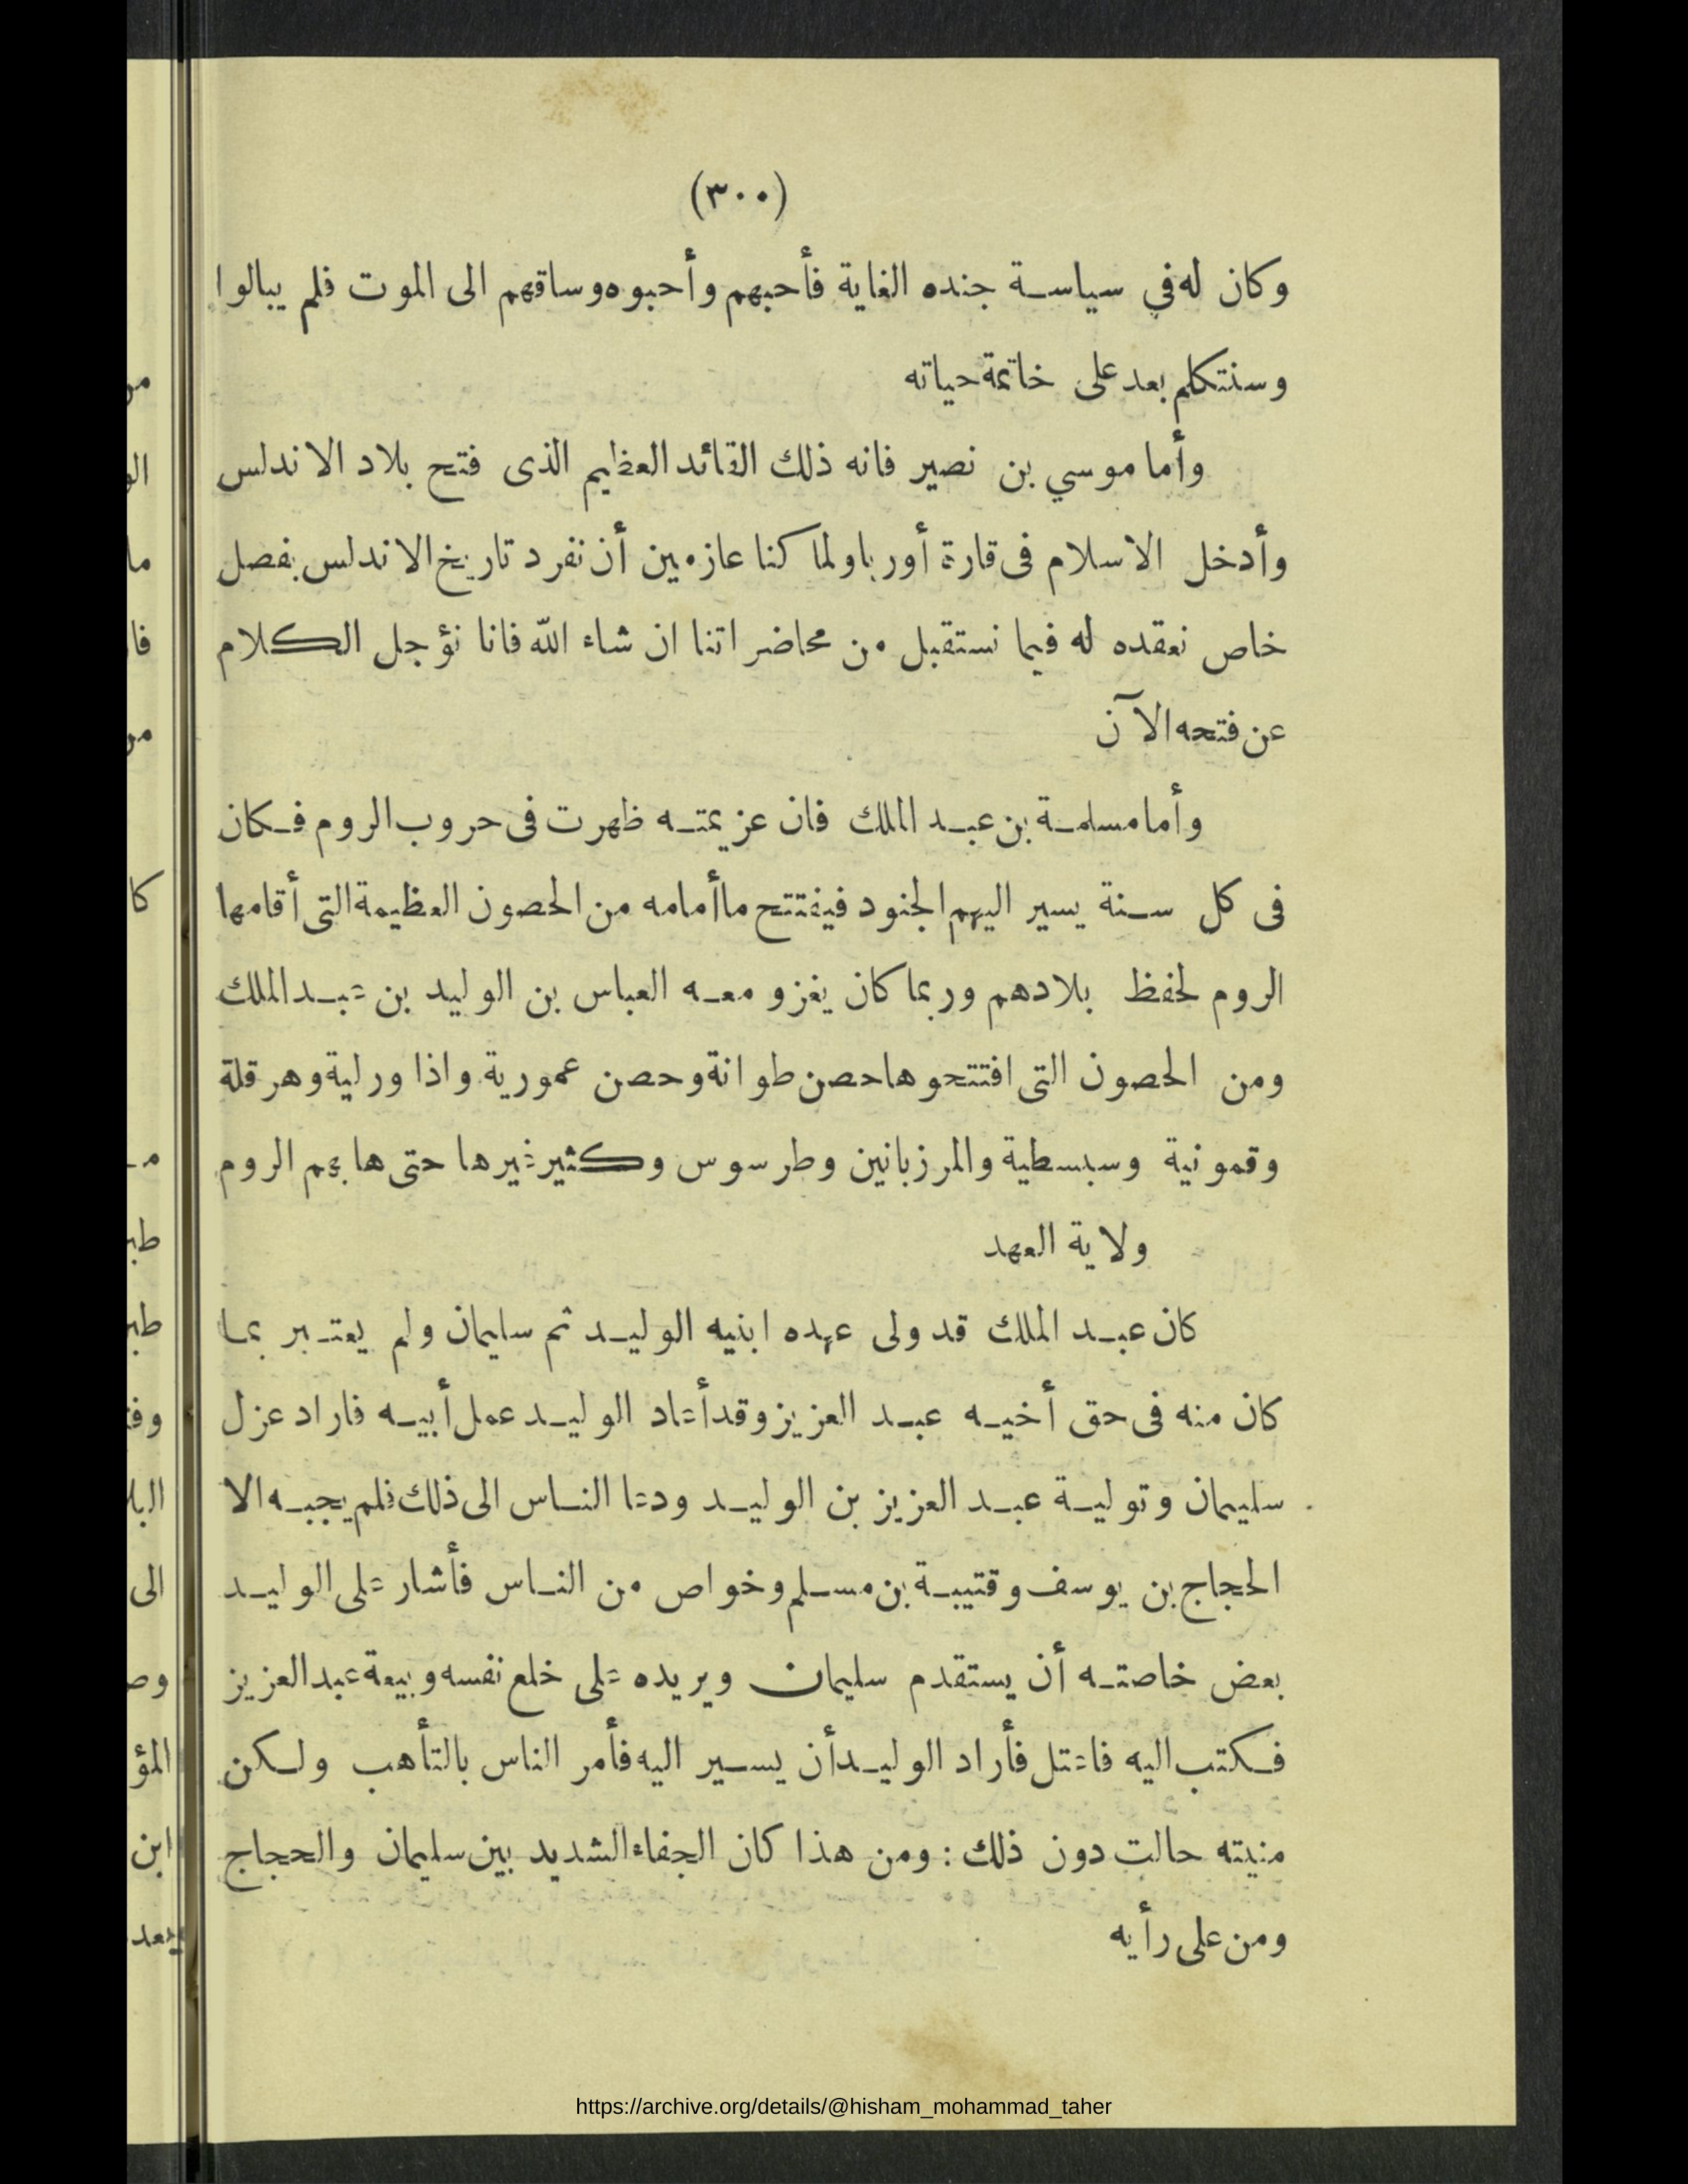 (٣٠٠)
وكان له في سياسة جنده الغاية فأحبهم وأحبوه وساقهم الى الموت فلم يبالوا
وسنتكلم بعد على خاتمة حياته
وأما موسي بن نصير فانه ذلك القائد العظيم الذى فتح بلاد الاندلس
وأدخل الاسلام فى قارة أوربا ولما كنا عازمين أن نفرد تاريخ الاندلس بفصل
خاص نعقده له فيما نستقبل من محاضراتنا ان شاء الله فانا نؤجل الكلام
عن فتحه الآن
وأما مسلمة بن عبد الملك فان عزيمته ظهرت فى حروب الروم فكان
فى كل سنة يسير اليهم الجنود فيفتتح ماأمامه من الحصون العظيمة التى أقامها
الروم لحفظ بلادهم وربما كان يغزو معه العباس بن الوليد بن عبد الملك
ومن الحصون التى افتتحوها حصن طوانة وحصن عمورية واذاورلية وهرقلة
وقمونية وسبسطية والمرزبانين وطرسوس وكثير غيرها حتى هابهم الروم
ولاية العهد
كان عبد الملك قد ولى عهده ابنيه الوليد ثم سليمان ولم يعتبر بما
كان منه فى حق أخيه عبد العزيز وقد أعاد الوليد عمل أبيه فاراد عزل
سليمان وتولية عبد العزيز بن الوليد ودعا الناس الى ذلك فلم يجبه الا
الحجاج بن يوسف وقتيبة بن مسلم وخواص من الناس فأشار على الوليد
بعض خاصته أن يستقدم سليمان ويريده على خلع نفسه وبيعة عبد العزيز
فكتب اليه فاعتل فأراد الوليد أن يسير اليه فأمر الناس بالتأهب ولكن
منيته حالت دون ذلك : ومن هذا كان الجفاء الشديد بين سليمان والحجاج
ومن على رأيه
https://archive.org/details/@hisham_mohammad_taher